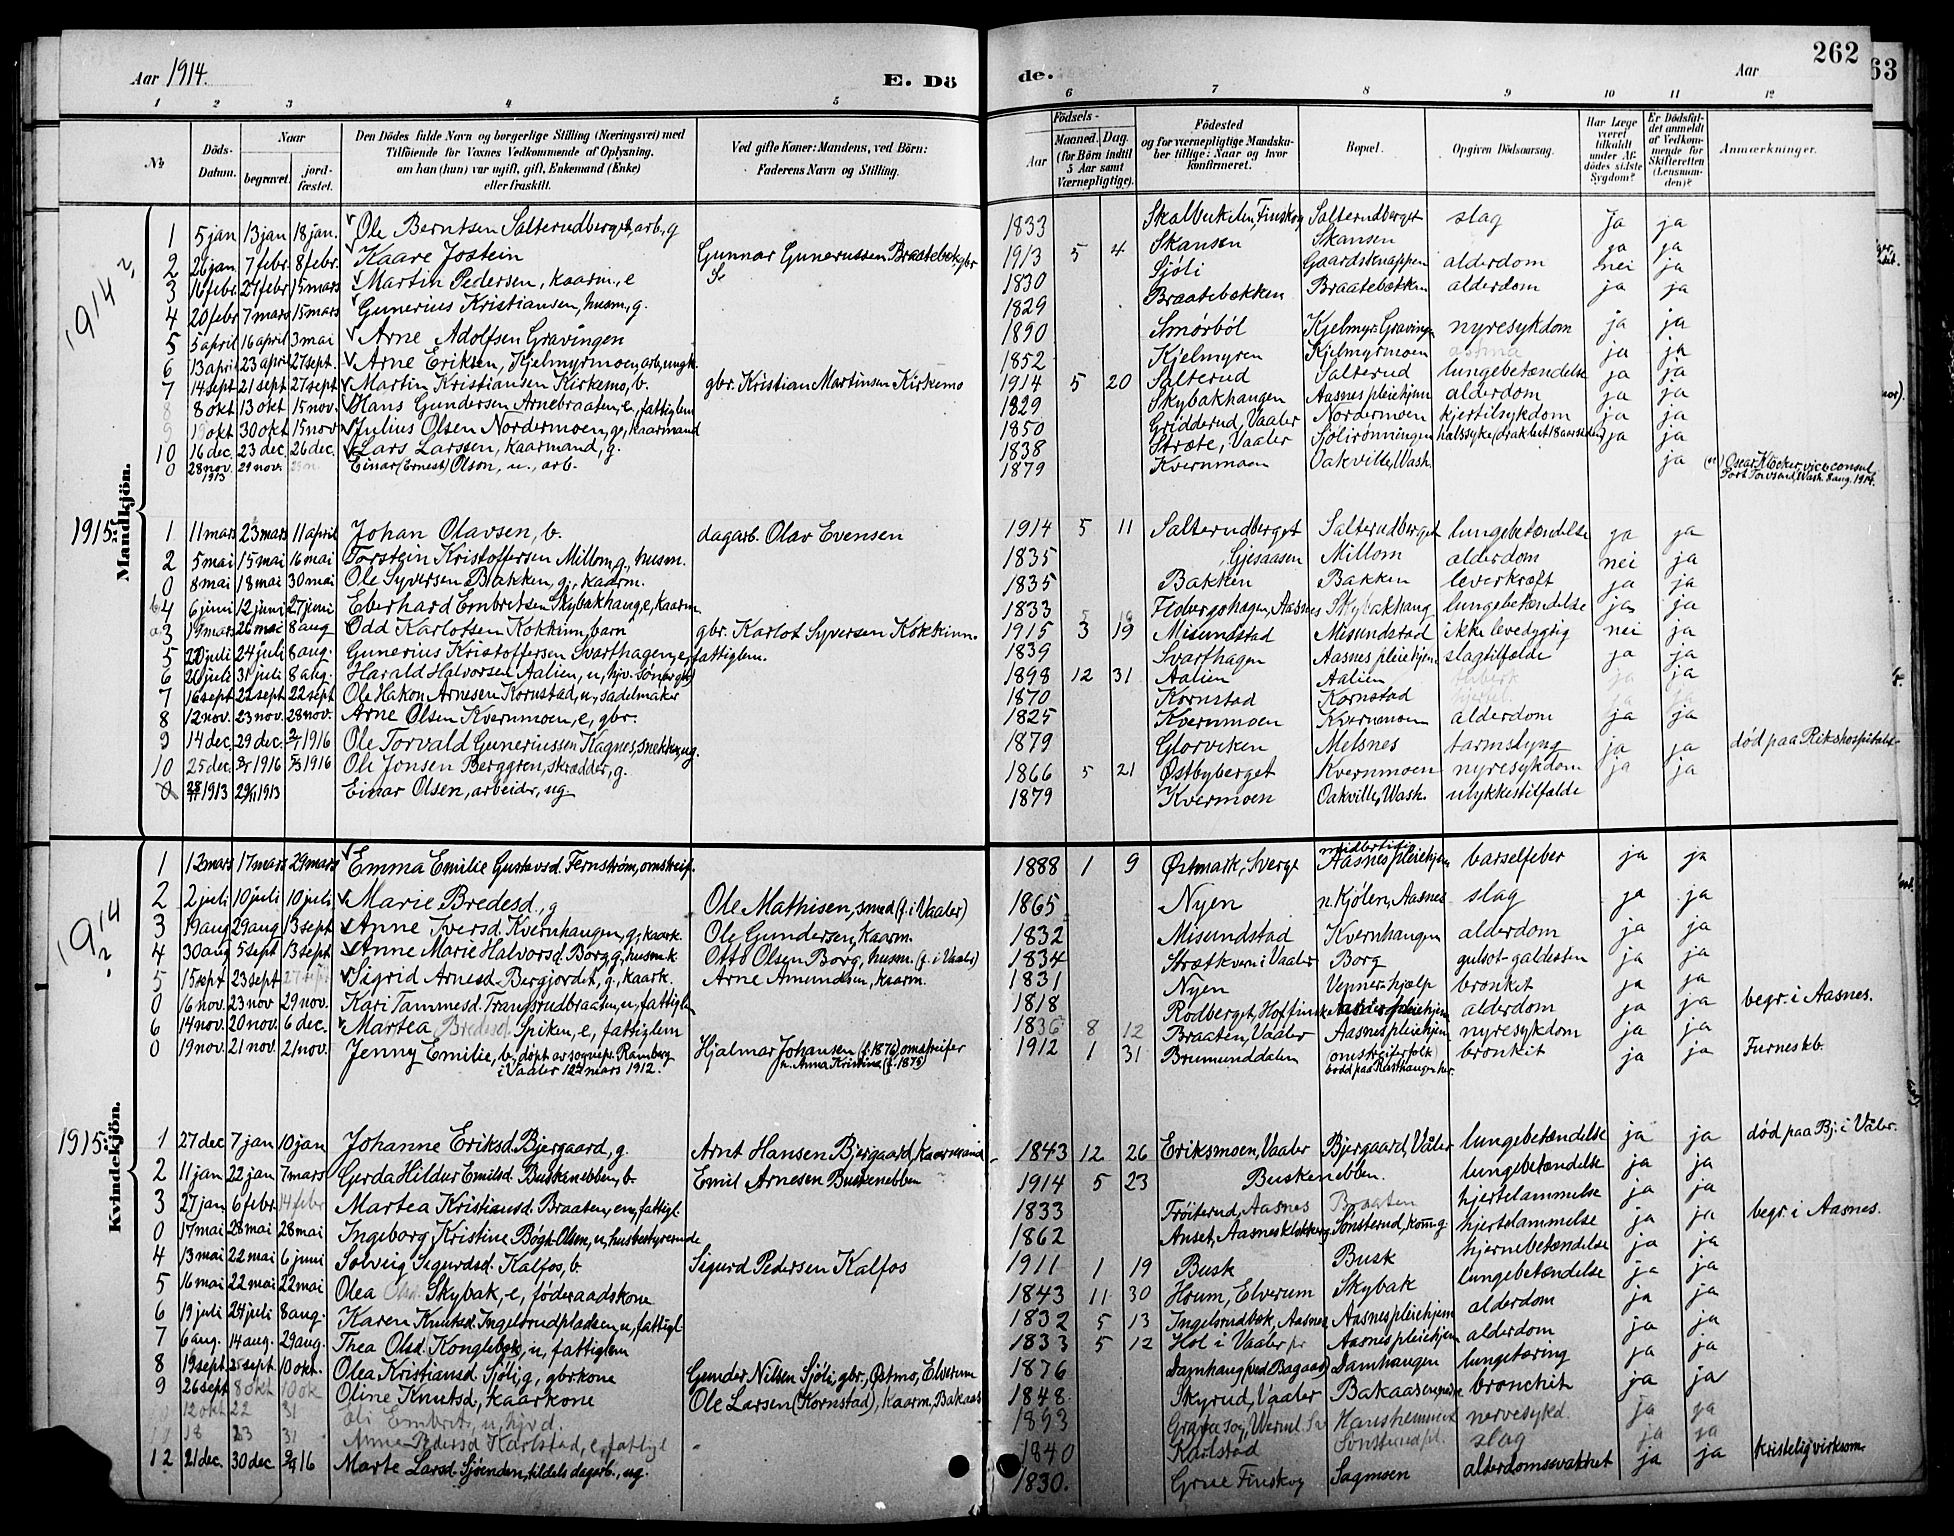 262
63
Aar 1914.
E. Dö
de.
Aar
1 2 3 4 5 6 7 8 9 10 11 12
No
Döds-Datum.
Naar
begravet.
jord-fæstet.
Den Dödes fulde Navn og borgerlige Stilling (Næringsvei) med
Tilföiende for Voxnes Vedkommende af Oplysning,
om han (hun) var ugift, gift, Enkemand (Enke)
eller fraskilt.
Ved gifte Koner: Mandens, ved Börn:
Faderens Navn og Stilling.
Födsels-
Aar
Maaned. Dag.
(for Börn indtil
5 Aar samt
Værnepligtige).
Födested
og for værnepligtige Mandska-
ber tillige: Naar og hvor
konfirmeret.
Bopæl.
Opgiven Dödsaarsag.
Har Læge
været
tilkaldt
under Af-
dödes sidste
Sygdom?
Er Dödsfal-
det anmeldt
af Vedkom-
mende for
Skifteretten
(Lensman-
den)?
Anmærkninger.
Mandkjön.
1914
1 5 jan 13 jan 18 jan. Ole Berntsen Salterudberget, arb, g 1833 Skalbukilen, Finskog Salterudberget slag Ja ja
2 26 jan. 7 febr. 8 febr. Kaare Jostein Gunnar Gunerussen Braatebek, gbr 1913 5 4 Skansen Skansen ja ja
3 16 febr. 27 febr 15 mars Martin Pedersen, kaarm., e 1830 Sjöli Gaardsknappen alderdom nei ja
4 20 febr 7 mars 15 mars Gunerius Kristiansen, husm, g. 1829 Braatebækken Braatebækken alderdom ja ja
5 5 april 16 april 3 mai Arne Adolfsen Gravingen 1890 Smörböl Kjelmyr-Gravingen nyresykdom ja ja
6 13 april 23 april 27 sept. Arne Eriksen, Kjelmyrmoen, arb, ungk. 1852 Kjelmyren Kjelmyrmoen astma ja ja
7 14 sept 21 sept 27 sept Martin Kristiansen Kirkemo, b. gbr. Kristian Martinsen Kirkemo 1914 5 20 Salterud Salterud lungebetændelse ja ja
8 8 okt 13 okt 15 nov. Hans Gundersen Arnebraaten, e, fattiglem 1829 Skybakhangen Aasnes pleiehjem alderdom ja ja
9 19 okt 30 okt 15 nov Julius Olsen Nordermoen, g, kaarmand 1850 Gridderud, Vaaler Nordermoen kjertilsykdom ja ja
10 16 dec. 23 dec. 26 dec. Lars Larssen, kaarmand, g. 1838 Stræte, Vaaler Sjölirönningen halssyke ja ja
0 28 nov. 1913 29 nov. Einar (Ernest) Olson, u., arb. 1879 Kvernmoen Oakville, Wash. ja Oscar Klocker, viceconsul
Port Townsend, Wash. 8 aug. 1914.
1915
1 11 mars 23 mars 11 april Johan Olavsen, b. dagarb. Olav Evensen 1914 5 11 Salterudberget Salterudberget lungebetændelse ja ja
2 5 mai 15 mai 16 mai Torstein Kristoffersen Millom, g, husm. 1835 Gjesaasen Millom alderdom nei ja
0 8 mai 18 mai 30 mai Ole Syversen Bakken, g, kaarm. 1835 Bakken Bakken leverkræft ja ja
b 4 6 juni 12 juni 27 juni Eberhard Embretsen Skybakhang, e, kaarm. 1833 5 19 Flobergshagen, Aasnes Skybakhang lungebetændelse ja ja
a 3 19 mars 26 mai 8 aug Odd Karlotsen Kokkinn, barn gbr. Karlot Syversen Kokkinn. 1915 3 19 Misundstad Misundstad ikke levedygtig nei ja
5 20 juli 24 juli 8 aug. Gunerius Kristoffersen Svarthagen, e, fattiglem. 1839 Svarthagen Aasnes pleiehjem slagtilfælde ja ja
6 26 juli 31 juli 8 aug. Harald Halvorsen Aalien, u, hjv. 1898 12 31 Aalien Aalien ja ja
7 16 sept 22 sept 22 sept Ole Hakon Arnesen Kornstad, u, sadelmaker 1870 Kornstad Kornstad ja ja
8 12 nov. 23 nov. 28 nov. Arne Olsen Kvernmoen, e, gbr. 1825 Kvernmoen Kvernmoen alderdom ja ja
9 14 dec. 29 dec. 2/1 1916 Ole Torvald Guneriussen Hagnes, snekker, ug. 1879 Glorviken Melsnes tarmslyng ja ja död paa Rikshospitalet
10 25 dec. 2/1 1916 5/3 1916 Ole Jonsen Berggren, skrædder, g. 1866 5 21 Östbyberget Kvernmoen nyresykdom ja ja
0 28/11 1913 29/11 1913 Einar Olsen, arbeider, ug 1879 Kvernmoen Oakville, Wash. ulykkestilfælde
Kvindekjön.
1914
1 12 mars 17 mars 29 mars Emma Emilie Gustavsd. Fernström, omstreif. 1888 1 9 Östmark, Sverge midlertidig Aasnes pleiehjem barselfeber ja ja
2 2 juli 10 juli 10 juli Marie Bredesd., g Ole Mathisen, smed (f. i Vaaler) 1865 Nyen n. Kjölen, Aasnes slag ja ja
3 19 aug 29 aug 13 sept Anne Iversd. Kvernhaugen, g, kaark. Ole Gundersen, kaarm. 1832 Misundstad Kvernhaugen alderdom ja ja
4 30 aug 5 sept 13 sept Anne Marie Halvorsd. Borg, g, husm.k Otto Olsen Borg, husm. (f. i Vaaler) 1834 Strætkvern i Vaaler Borg gulsot-galdesten ja ja
5 15 sept 23 sept 27 sept Sigrid Arnesd. Bergjordet, g, kaark. Arne Amundsen, kaarm. 1831 Nyen Vermerhjælp bronket ja ja
0 16 nov. 23 nov 29 nov. Kari Tammesd. Trangsrudbraaten, u, fattiglem 1818 Rödberget, Hof finsk. Aasnes pleiehjem alderdom ja ja begr. i Aasnes.
6 14 nov. 20 nov. 6 dec. Martea Bredesd. Spiken, e, fattiglem 1836 8 12 Braaten, Vaaler Aasnes pleiehjem nyresykdom ja ja
0 19 nov. 21 nov. 21 nov. Jenny Emilie, b, döpt av sognepr. Ramberg
i Vaaler 12 mars 1912. Hjalmar Johansen (f. 1876) omstreifer
h. Anna Kristine (f. 1875) 1912 1 31 Brumunddalen (omstreiferfolk)
bodd paa Rasthaugen her. bronkit ja ja Furnes kb.
1915
1 27 dec 7 jan 10 jan Johanne Eriksd. Bjergaard, g. Arnt Hansen Bjergaard, kaarmand 1843 12 26 Eriksmoen, Vaaler Bjergaard, Våler lungebetændelse ja ja död paa Bj. i Våler.
2 11 jan 22 jan 7 mars Gerda Hildur Emilsd. Buskenebben, b. Emil Arnesen Buskenebben 1914 5 23 Buskenebben. lungebetændelse ja ja
3 27 jan 6 febr. 14 febr Martea Kristiansd. Braaten, en, fattigl. 1833 Fröiterud, Aasnes Braaten hjertelammelse ja ja
0 17 mai 28 mai 28 mai Ingeborg Kristine Bögh-Olsen, u, husbestyrerinde 1862 Anset, Aasnes Sönsterud, kom. g. hjertelammelse ja ja begr. i Aasnes.
4 13 mai 22 mai 6 juni Solveig Sigurdsd. Kalfos, b. Sigurd Pedersen Kalfos 1911 1 19 Busk Busk hjernebetændelse ja ja
5 16 mai 22 mai 22 mai Olea Olsd. Skybak, e, föderaadskone 1843 11 30 Hrum, Elverum Skybak lungebetændelse ja ja
6 19 juli 24 juli 8 aug. Karen Knutsd. Ingelsrudpladsen, u, fattigl 1832 5 13 Ingelsrudbak, Aasnes Aasnes pleiehjem alderdom ja ja
7 6 aug. 14 aug. 29 aug. Thea Olsd. Konglebæk, u, fattiglem 1833 5 12 Hol i Vaaler pr Aasnes pleiehjem alderdom ja ja
8 19 sept. 25 sept. 10 okt. Olea Kristiansd. Sjöli, g, gbrkone Gunder Nilsen Sjöli, gbr, Östmo, Elverum 1876 Damhaug (ved Bagaas) Damhaugen lungetæring ja ja
9 26 sept 8 okt 10 ok Oline Knutsd., kaarkone Ole Larsen (Kornstad), kaarm, Bakaas 1848 Skyrud, Vaaler Bakaasengen bronchit ja ja
12 okt 22 31 Oli Embrets., u, hjvd. 1893 nervesykd. ja ja
18 23 31 Anne Pedersd. Karlstad, e, fattigl 1840 Karlstad slag ja ja
12 21 dec. 30 dec 16 Marte Larsd. Sjöenden, tildels dagarb., ug. 1830. Grue Finskog Sagmoen alderdomssvakhet ja ja kristelig virksom.